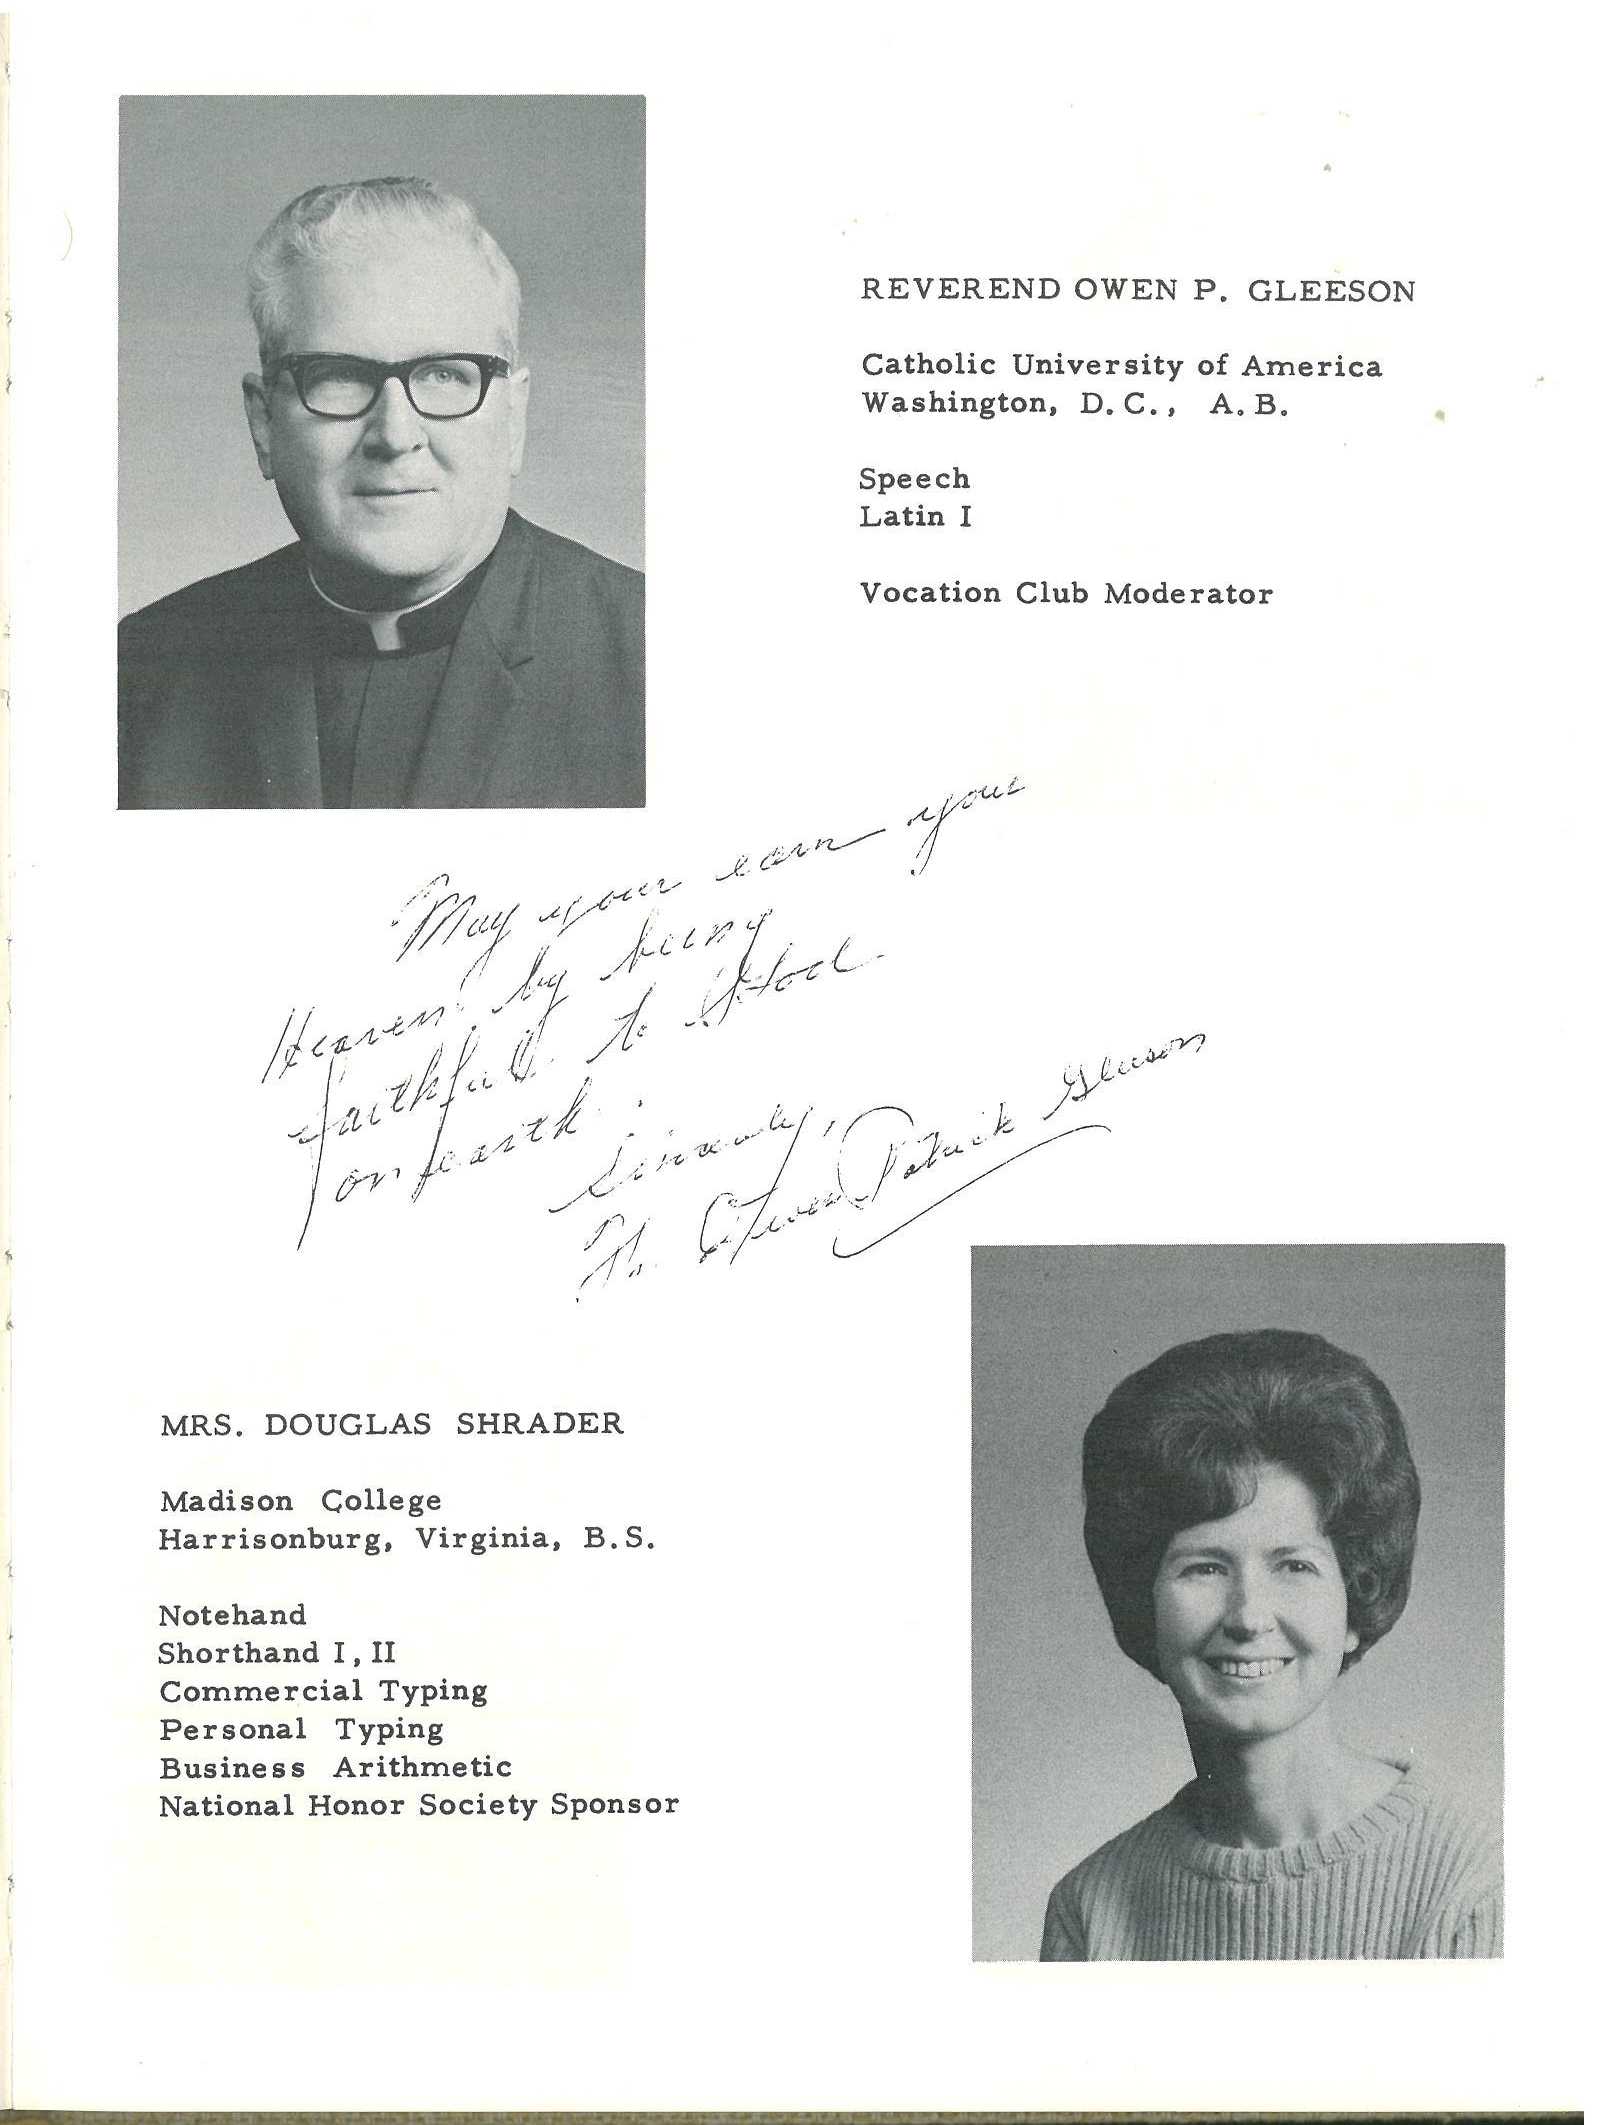 REVEREND OWEN P. GLEESON
Catholic University of America
Washington, D.C., A.B.
Speech
Latin I
Vocation Club Moderator
May your earn your
Heaven by being
faithful to God
on earth.
Sincerely,
Fr. Owen Patrick Gleeson
MRS. DOUGLAS SHRADER
Madison College
Harrisonburg, Virginia, B.S.
Notehand
Shorthand I, II
Commercial Typing
Personal Typing
Business Arithmetic
National Honor Society Sponsor